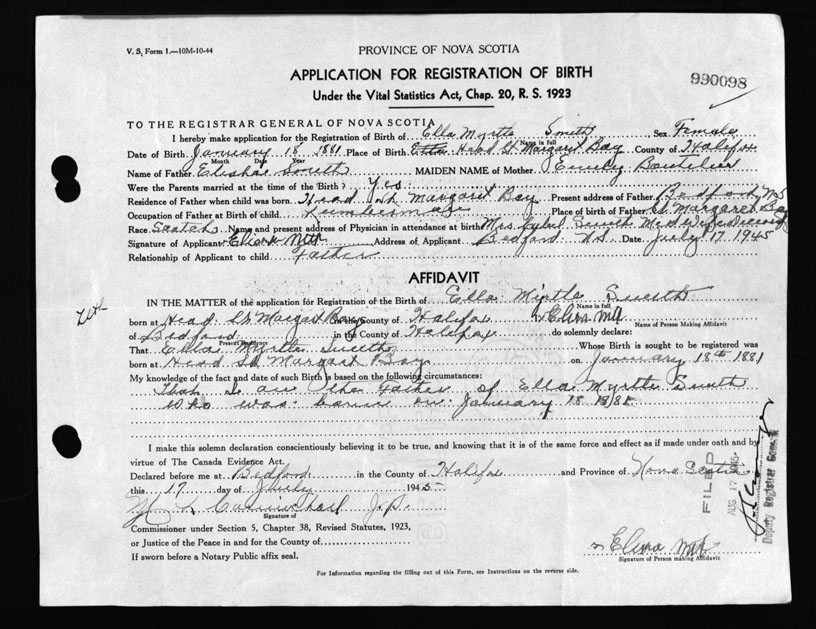 V. S. Form 1.—10M-10-44
PROVINCE OF NOVA SCOTIA
APPLICATION FOR REGISTRATION OF BIRTH
990098
Under the Vital Statistics Act, Chap. 20, R. S. 1923
TO THE REGISTRAR GENERAL OF NOVA SCOTIA
I hereby make application for the Registration of Birth of Ella Myrtle Smith Sex Female
Name in full
Date of Birth January 18 1881 Place of Birth Head St Margaret Bay County of Halifax
Month Date Year
Name of Father Elisha Smith MAIDEN NAME of Mother Emily Boutilier
Were the Parents married at the time of the Birth? Yes
Residence of Father when child was born Head St Margaret Bay Present address of Father Bedford NS
Occupation of Father at Birth of child Lumberman Place of birth of Father St Margaret Bay
Race Scotch Name and present address of Physician in attendance at birth Mrs Smith Mid Wife
Signature of Applicant Address of Applicant Bedford NS Date July 17 1945
Relationship of Applicant to child Father
AFFIDAVIT
IN THE MATTER of the application for Registration of the Birth of Ella Mirtle Smith
Name in full
born at Head St Margaret Bay in the County of Halifax
Name of Person Making Affidavit
of Bedford in the County of Halifax do solemnly declare:
Present Residence
That Ella Myrtle Smith Whose Birth is sought to be registered was
born at Head St Margaret Bay on January 18th 1881
My knowledge of the fact and date of such Birth is based on the following circumstances:
That I am the Father of Ella Myrtle Smith
Who was born on January 18
I make this solemn declaration conscientiously believing it to be true, and knowing that it is of the same force and effect as if made under oath and by
virtue of The Canada Evidence Act.
Declared before me at Bedford in the County of Halifax and Province of Nova Scotia
this 17 day of July 1945
J.P.
Signature of
Commissioner under Section 5, Chapter 38, Revised Statutes, 1923,
or Justice of the Peace in and for the County of
If sworn before a Notary Public affix seal.
Signature of Person making Affidavit
For Information regarding the filling out of this Form, see Instructions on the reverse side.
FILED
AUG 17 1945
Deputy Registrar General